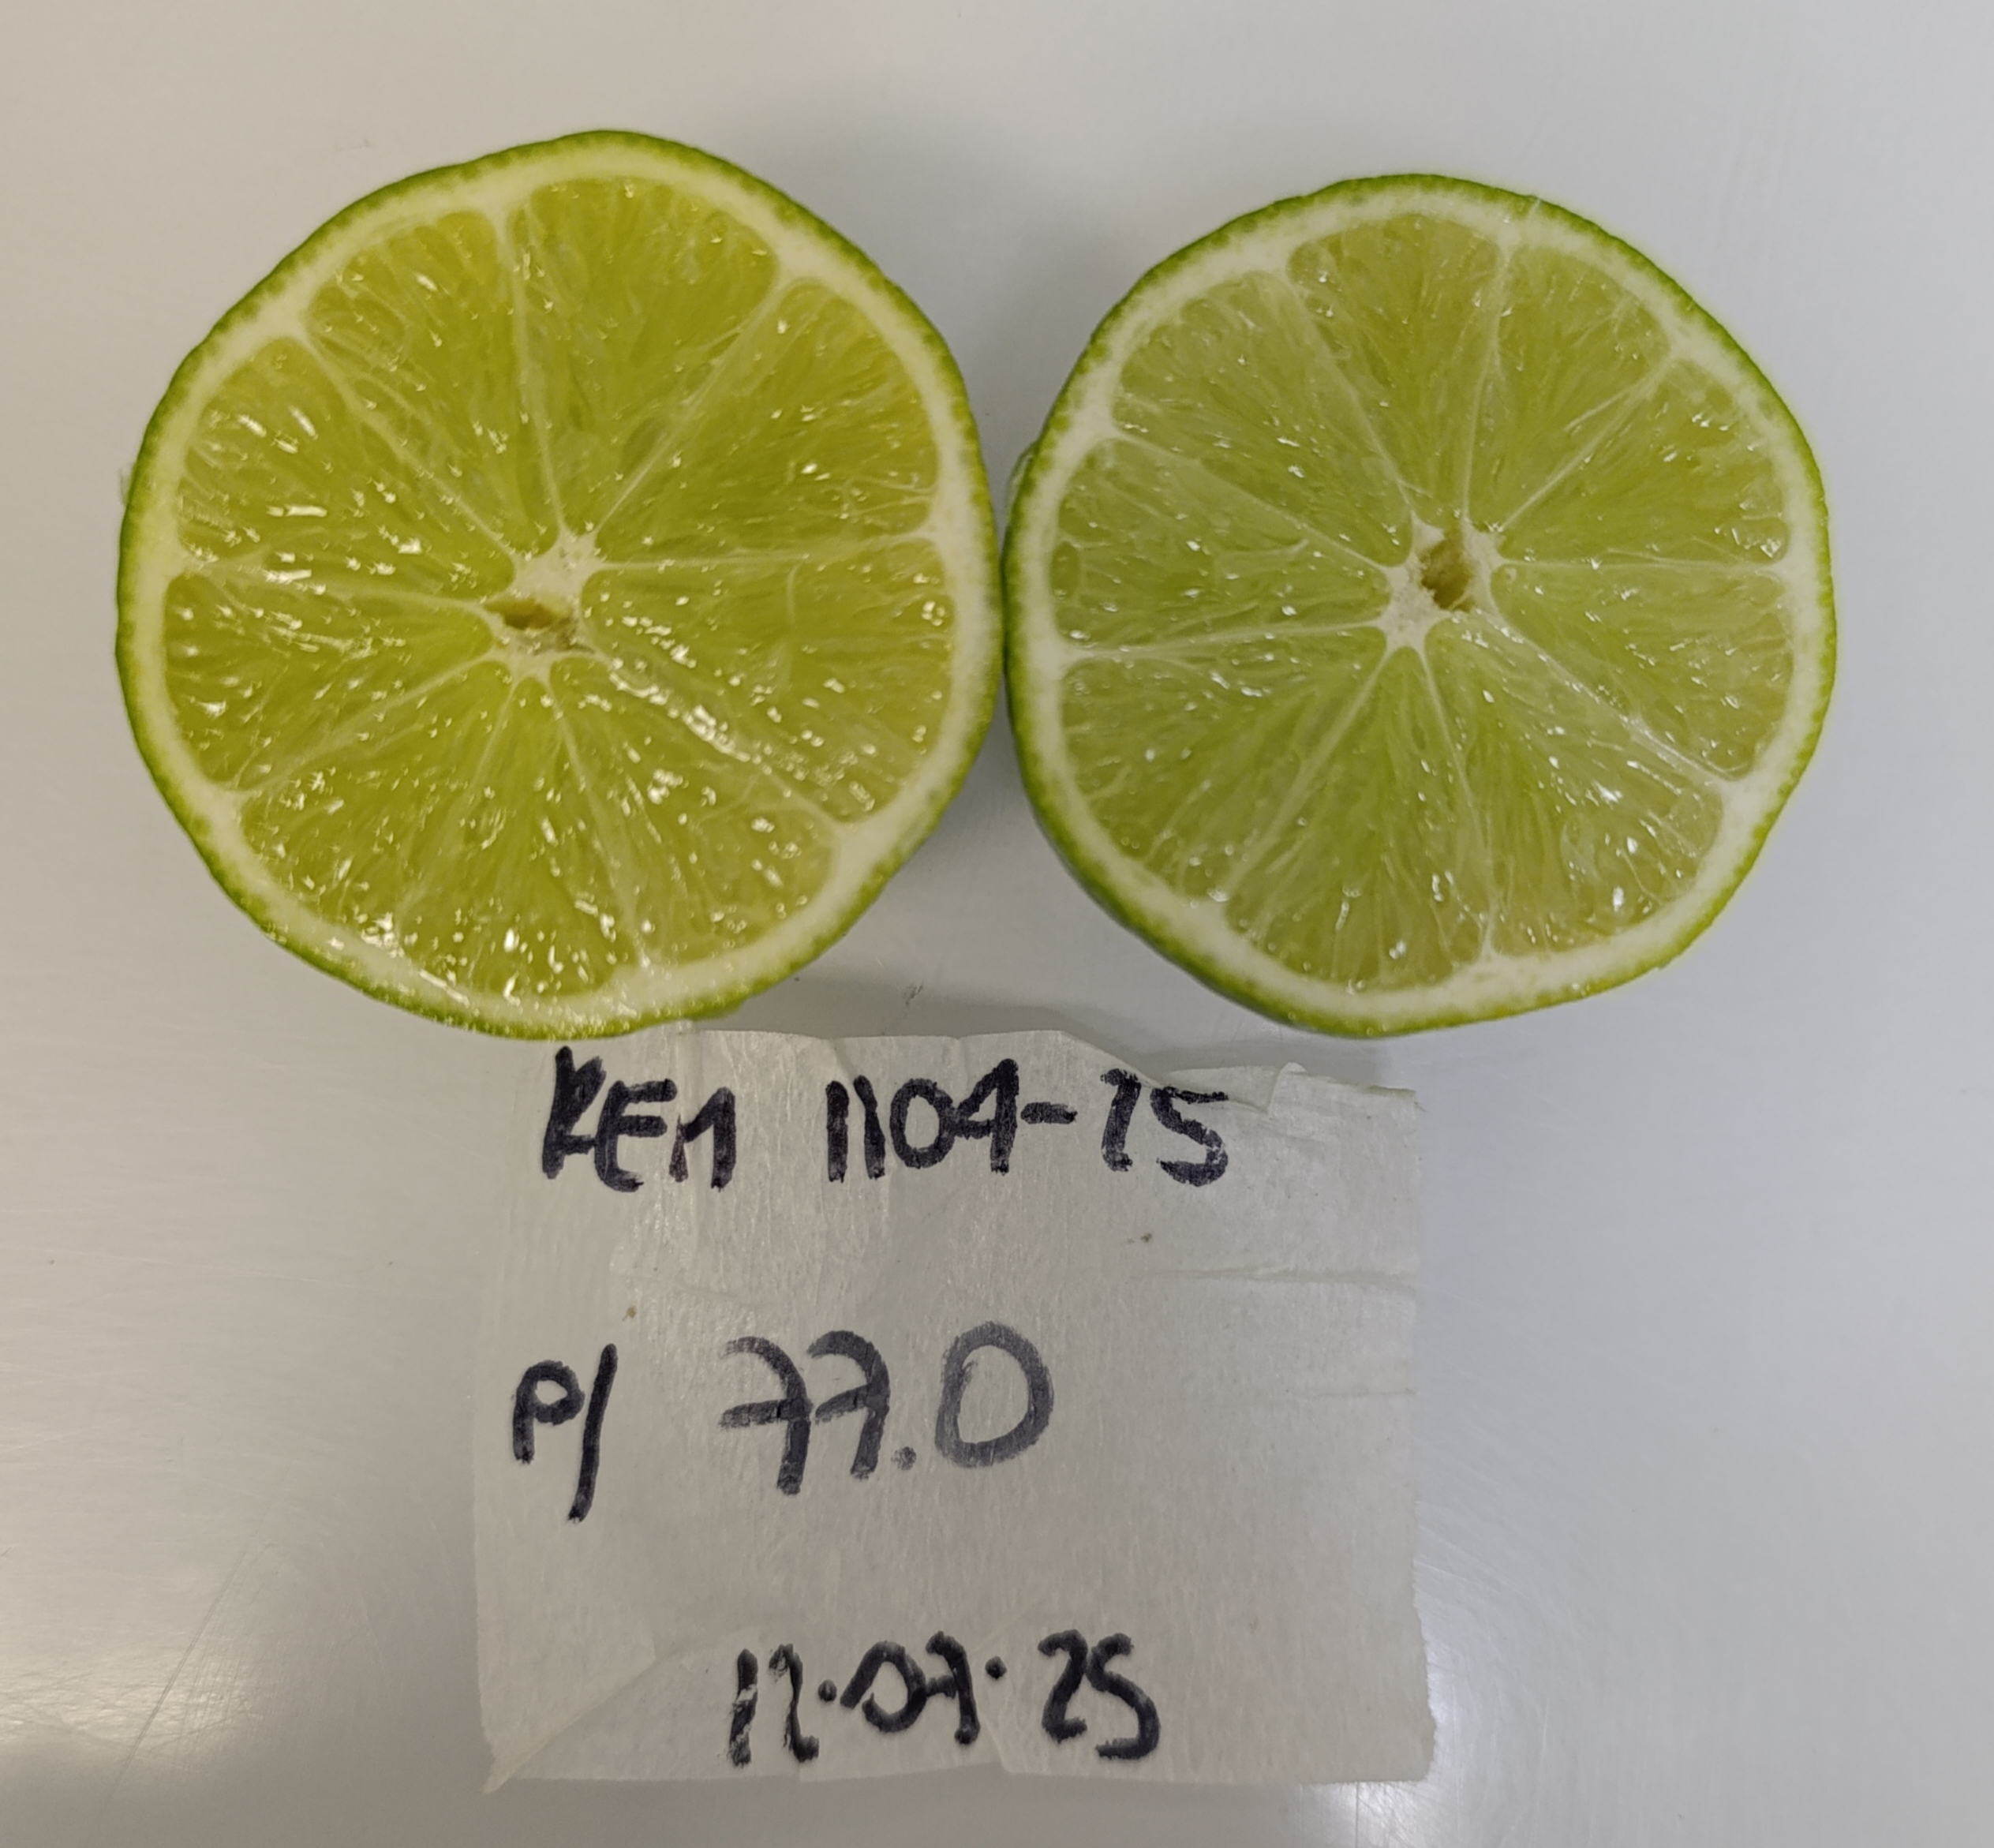 REM 1104-25
P/ 77.0
12.07.25